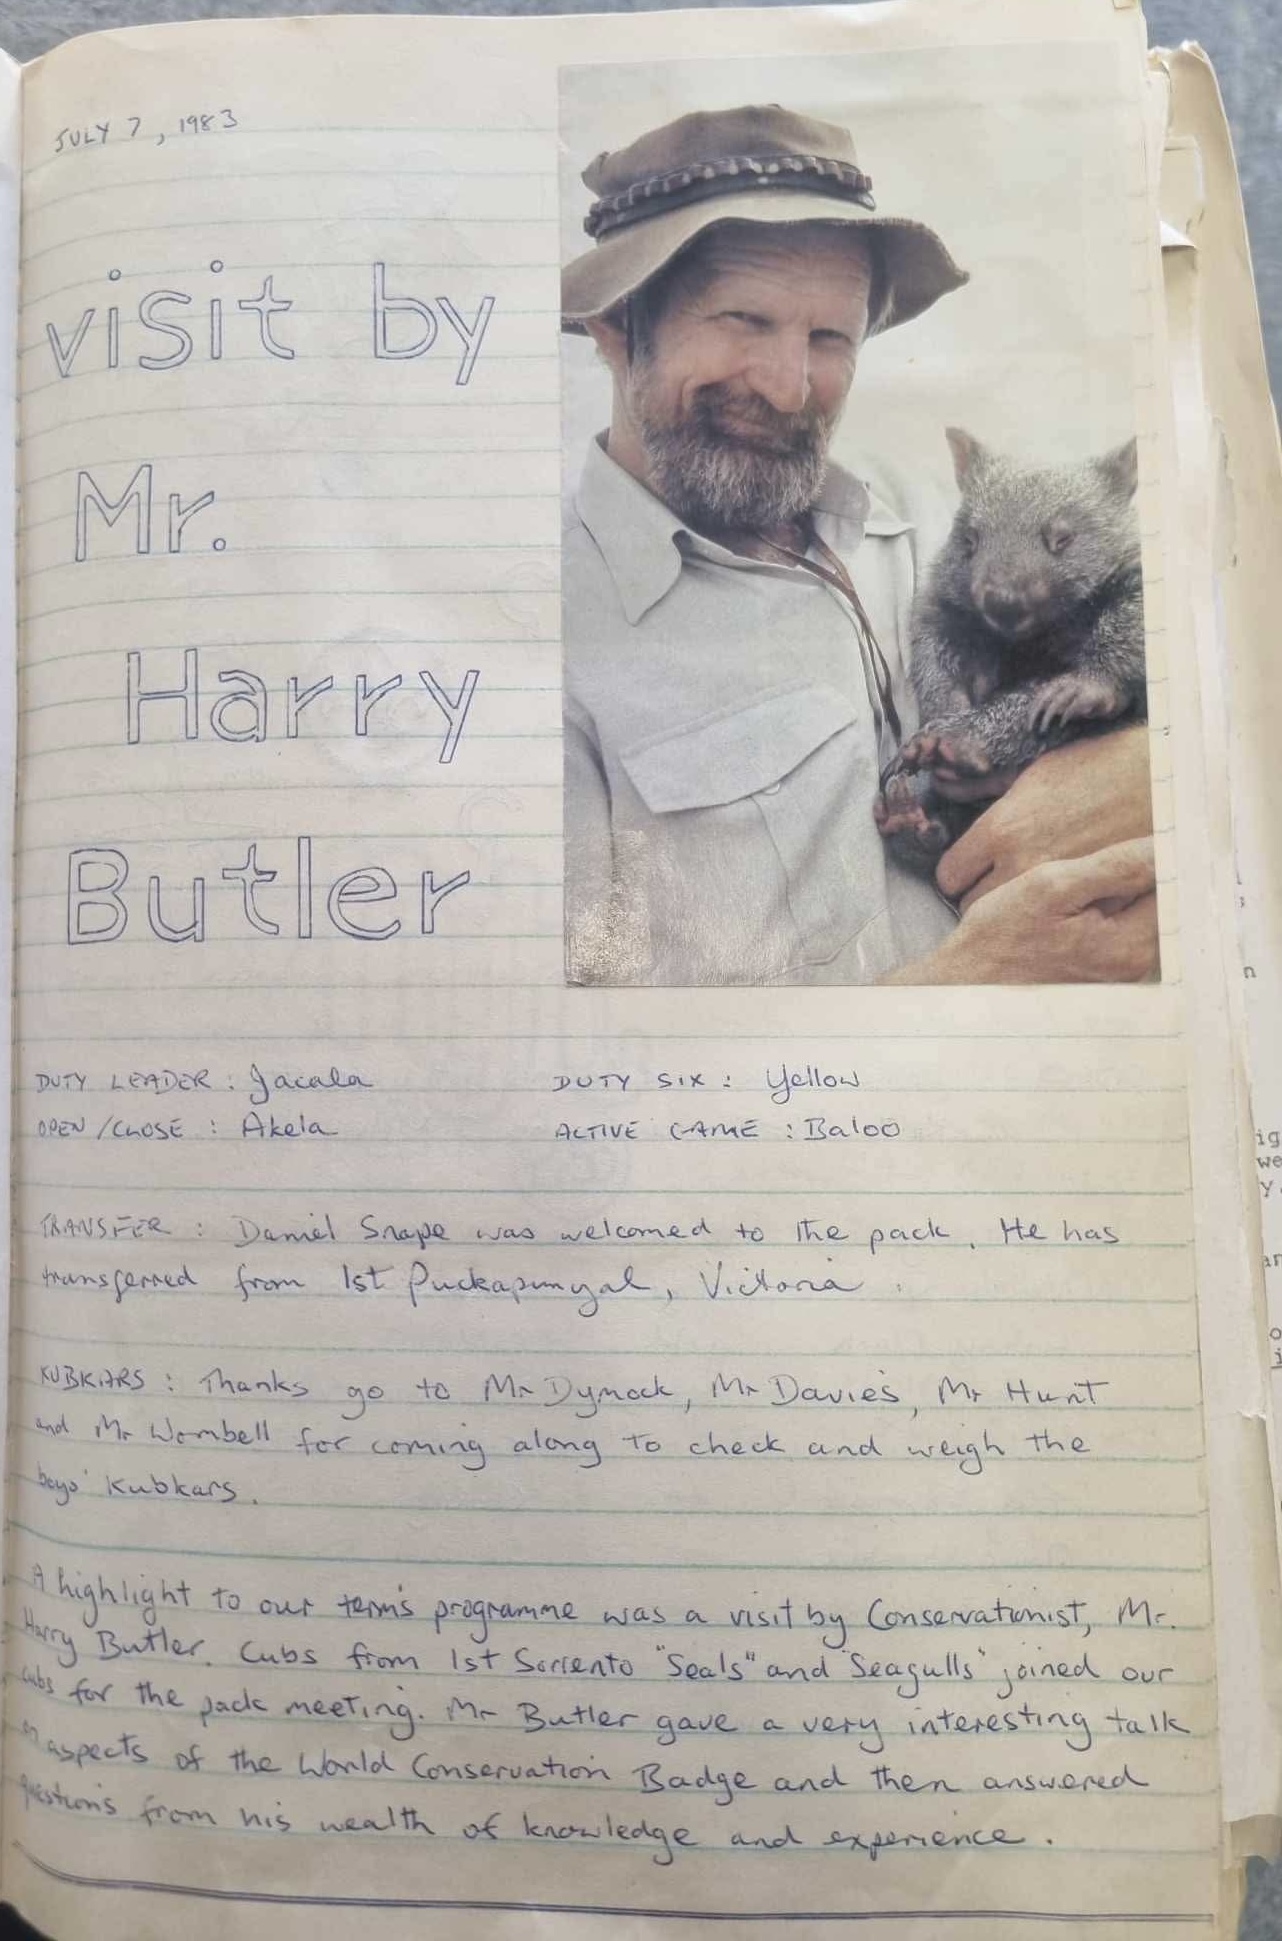 JULY 7, 1983
visit by
Mr.
Harry
Butler
DUTY LEADER : Jacala
DUTY SIX : Yellow
OPEN/CLOSE : Akela
ACTIVE GAME : Baloo
TRANSFER : Daniel Snape was welcomed to the pack. He has
transferred from 1st Puckapunyal, Victoria.
KUBKARS : Thanks go to Mr Dymock, Mr Davies, Mr Hunt
and Mr Wombell for coming along to check and weigh the
boys' Kubkars.
A highlight to our term's programme was a visit by Conservationist, Mr.
Harry Butler. Cubs from 1st Sorrento "Seals" and "Seagulls" joined our
cubs for the pack meeting. Mr Butler gave a very interesting talk
on aspects of the World Conservation Badge and then answered
questions from his wealth of knowledge and experience.